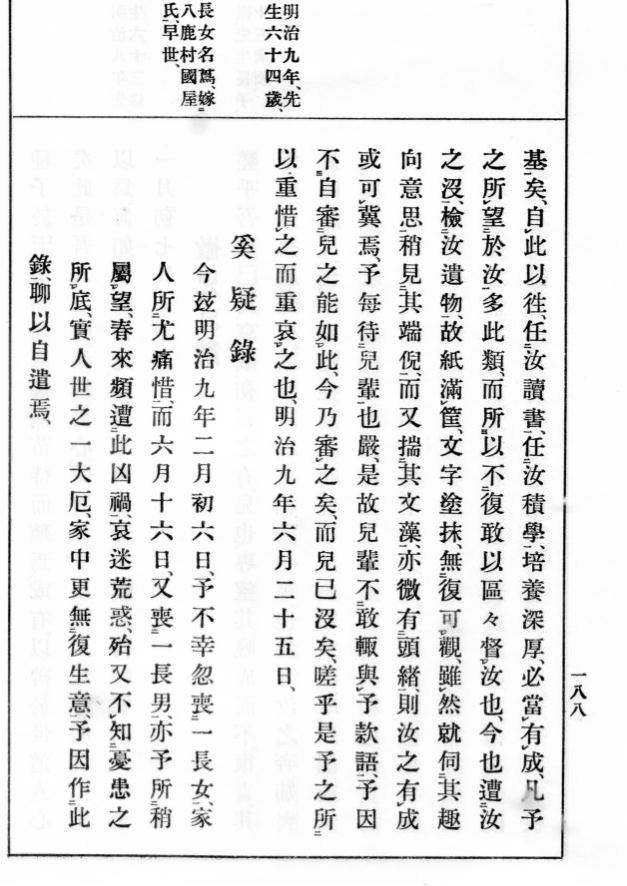 明治九年、先
生六十四歳、
長女名爲、嫁
八鹿村國屋
氏、早世、
基矣、自此以徃、任汝讀書、任汝積學、培養深厚、必當有成、凡予
之所望於汝、多此類、而所以不復敢以區々督汝也、今也遭汝
之沒、檢汝遺物、故紙滿筐、文字塗抹、無復可觀、雖然就伺其趣
向意思、稍見其端倪、而又揣其文藻、亦微有頭緒、則汝之有成
或可冀焉、予每待兒輩也嚴、是故兒輩不敢輙與予款語、予因
不自審兒之能如此、今乃審之矣、而兒已沒矣、嗟乎是予之所
以重惜之而重哀之也、明治九年六月二十五日、
奚疑錄
今玆明治九年二月初六日、予不幸忽喪一長女、家
人所尤痛惜、而六月十六日又喪一長男、亦予所稍
屬望、春來頻遭此凶禍、哀迷荒惑、殆又不知憂患之
所底、實人世之一大厄、家中更無復生意、予因作此
錄、聊以自遣焉、
一八八